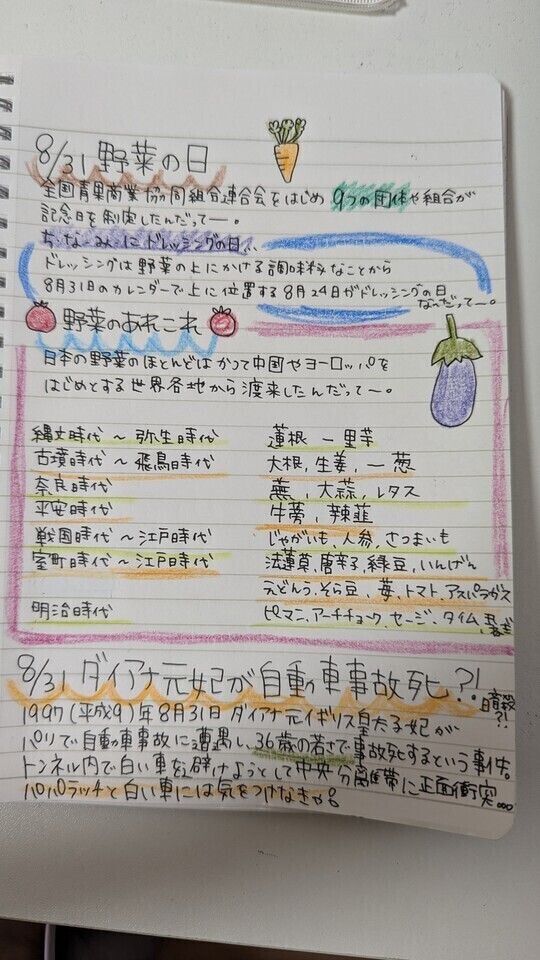 8/31 野菜の日
全国青果商業協同組合連合会をはじめ 9つの団体や組合が
記念日を制定したんだってー。
ち・な・み・に ドレッシングの日..
ドレッシングは野菜の上にかける調味料なことから
8月31日のカレンダーで上に位置する8月24日がドレッシングの日
なんだってー。
野菜のあれこれ
日本の野菜のほとんどはかつて中国やヨーロッパを
はじめとする世界各地から渡来したんだってー。
縄文時代 〜 弥生時代 蓮根 - 里芋
古墳時代 〜 飛鳥時代 大根, 生姜, - 葱
奈良時代 蕪, 大蒜, レタス
平安時代 牛蒡, 辣韮
戦国時代 〜 江戸時代 じゃがいも, 人参, さつまいも
室町時代 〜 江戸時代 法蓮草, 唐辛子, 緑豆, いんげん
えどんう, そら豆, 苺, トマト, アスパラガス
明治時代 ピマニ, アーチチョーク, セージ, タイム,
8/31 ダイアナ元妃が自動車事故死?!
暗殺?!
1997(平成9)年8月31日 ダイアナ元イギリス皇太子妃が
パリで自動車事故に遭遇し, 36歳の若さで事故死するという事件。
トンネル内で白い車を避けようとして中央分離帯に正面衝突...
パパラッチと白い車には気をつけなきゃ。